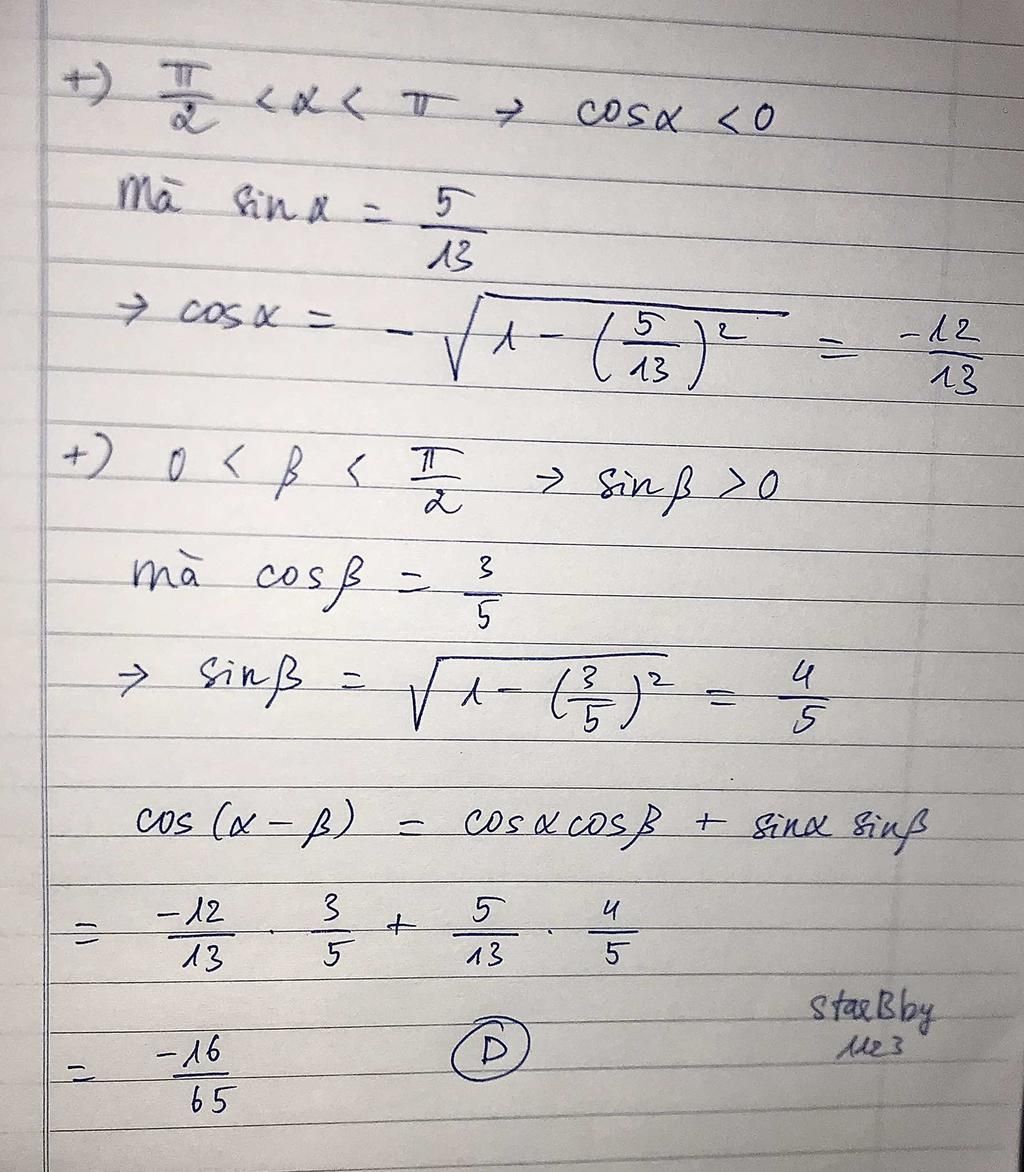 +) π/2 < α < π → cosα < 0
Mà sinα = 5/13
→ cosα = -√(1 - (5/13)²) = -12/13
+) 0 < β < π/2 → sinβ > 0
mà cosβ = 3/5
→ sinβ = √(1 - (3/5)²) = 4/5
cos(α - β) = cosα cosβ + sinα sinβ
= -12/13 . 3/5 + 5/13 . 4/5
= -16/65 D